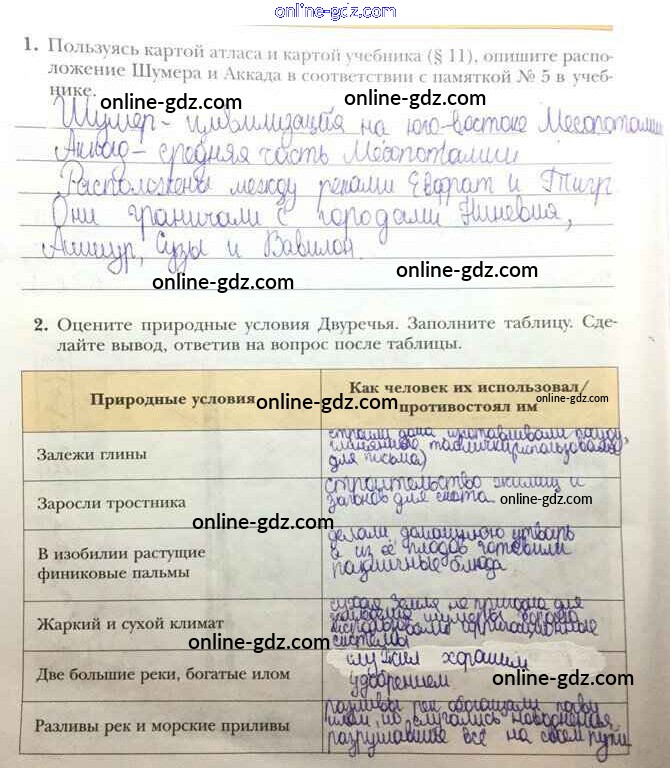 online-gdz.com
1. Пользуясь картой атласа и картой учебника (§ 11), опишите распо-
ложение Шумера и Аккада в соответствии с памяткой № 5 в учеб-
нике.
online-gdz.com online-gdz.com
Шумер - цивилизация на юго-востоке Месопотамии
Аккад - средняя часть Месопотамии
Расположены между реками Евфрат и Тигр.
Они граничали с городами Ниневия,
Ашшур, Сузы и Вавилон.
online-gdz.com online-gdz.com
2. Оцените природные условия Двуречья. Заполните таблицу. Сде-
лайте вывод, ответив на вопрос после таблицы.
Природные условия
Как человек их использовал/
противостоял им
online-gdz.com online-gdz.com
Залежи глины
строили дома изготавливали посуду,
глиняные таблички(использовали
для письма)
Заросли тростника
строительство жилищ и
загонов для скота
online-gdz.com
online-gdz.com
В изобилии растущие
финиковые пальмы
делали домашнюю утварь
а из её плодов готовили
различные блюда
Жаркий и сухой климат
сухая земля не пригодна для
использовали ирригационные
системы
online-gdz.com
Две большие реки, богатые илом
служил хорошим
удобрением
online-gdz.com
Разливы рек и морские приливы
разливы рек обогащали почву
илом, но случались наводнения,
разрушавшие всё на своем пути
online-gdz.com